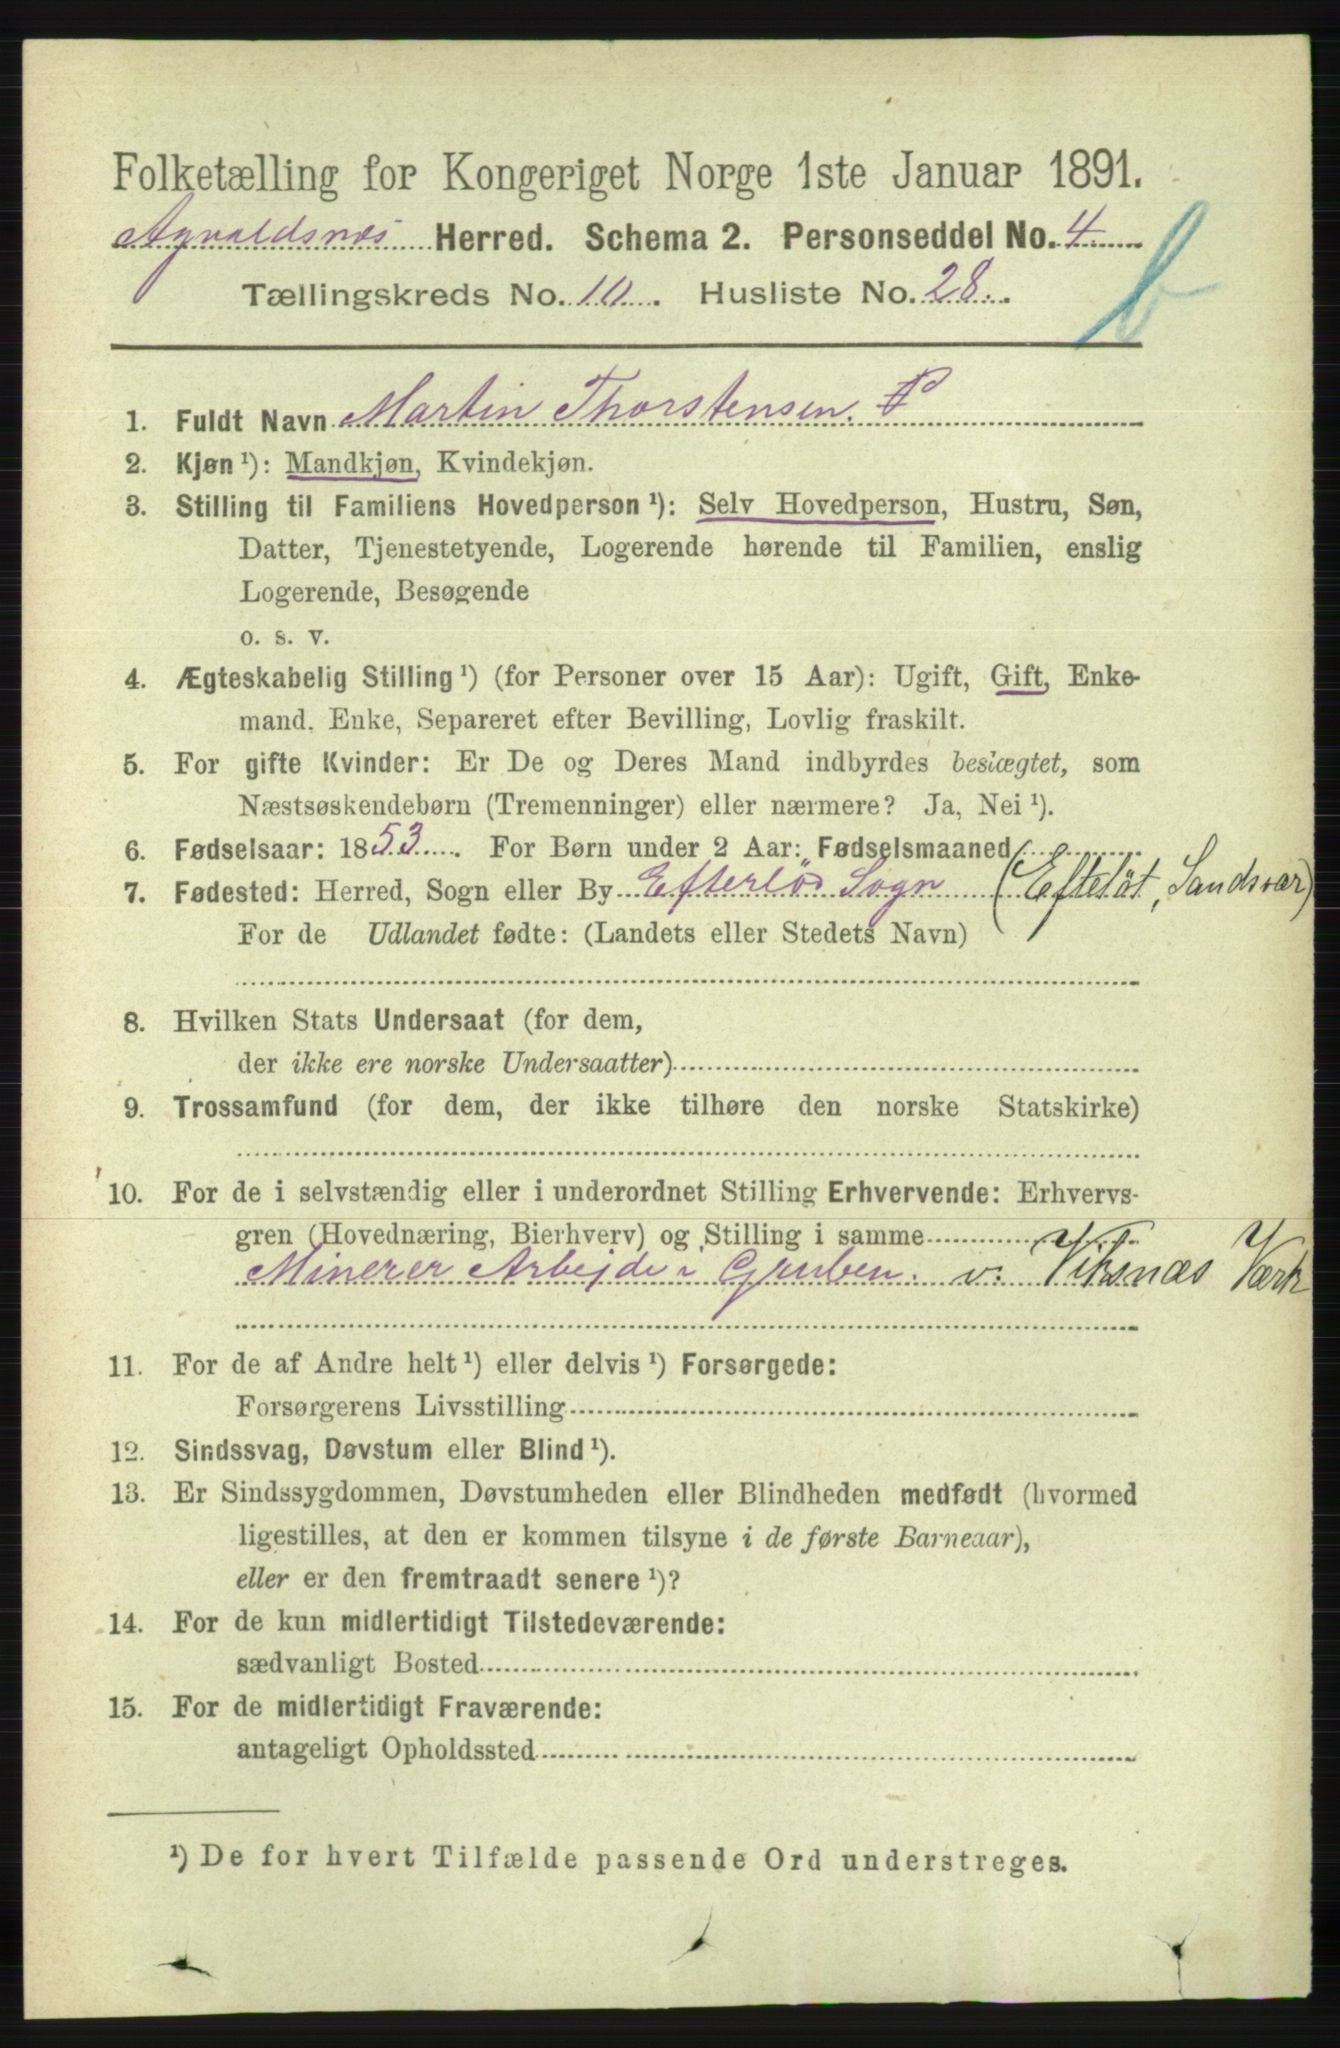 Folketælling for Kongeriget Norge 1ste Januar 1891.
Agvaldsnæs Herred. Schema 2. Personseddel No. 4
Tællingskreds No. 10. Husliste No. 28.
b
1. Fuldt Navn Martin Thorstensen.
2. Kjøn ¹): Mandkjøn, Kvindekjøn.
3. Stilling til Familiens Hovedperson ¹): Selv Hovedperson, Hustru, Søn,
Datter, Tjenestetyende, Logerende hørende til Familien, enslig
Logerende, Besøgende
o. s. v.
4. Ægteskabelig Stilling ¹) (for Personer over 15 Aar): Ugift, Gift, Enke-
mand, Enke, Separeret efter Bevilling, Lovlig fraskilt.
5. For gifte Kvinder: Er De og Deres Mand indbyrdes beslægtet, som
Næstsøskendebørn (Tremenninger) eller nærmere? Ja, Nei ¹).
6. Fødselsaar: 1853. For Børn under 2 Aar: Fødselsmaaned
7. Fødested: Herred, Sogn eller By Efterløs Sogn (Efteløt, Sandsvær)
For de Udlandet fødte: (Landets eller Stedets Navn)
8. Hvilken Stats Undersaat (for dem,
der ikke ere norske Undersaatter)
9. Trossamfund (for dem, der ikke tilhøre den norske Statskirke)
10. For de i selvstændig eller i underordnet Stilling Erhvervende: Erhvervs-
gren (Hovednæring, Bierhverv) og Stilling i samme
Minerer Arbejde i Gruben. v. Viksnæs Værk
11. For de af Andre helt ¹) eller delvis ¹) Forsørgede:
Forsørgerens Livsstilling
12. Sindssvag, Døvstum eller Blind ¹).
13. Er Sindssygdommen, Døvstumheden eller Blindheden medfødt (hvormed
ligestilles, at den er kommen tilsyne i de første Barneaar),
eller er den fremtraadt senere ¹)?
14. For de kun midlertidigt Tilstedeværende:
sædvanligt Bosted
15. For de midlertidigt Fraværende:
antageligt Opholdssted
¹) De for hvert Tilfælde passende Ord understreges.